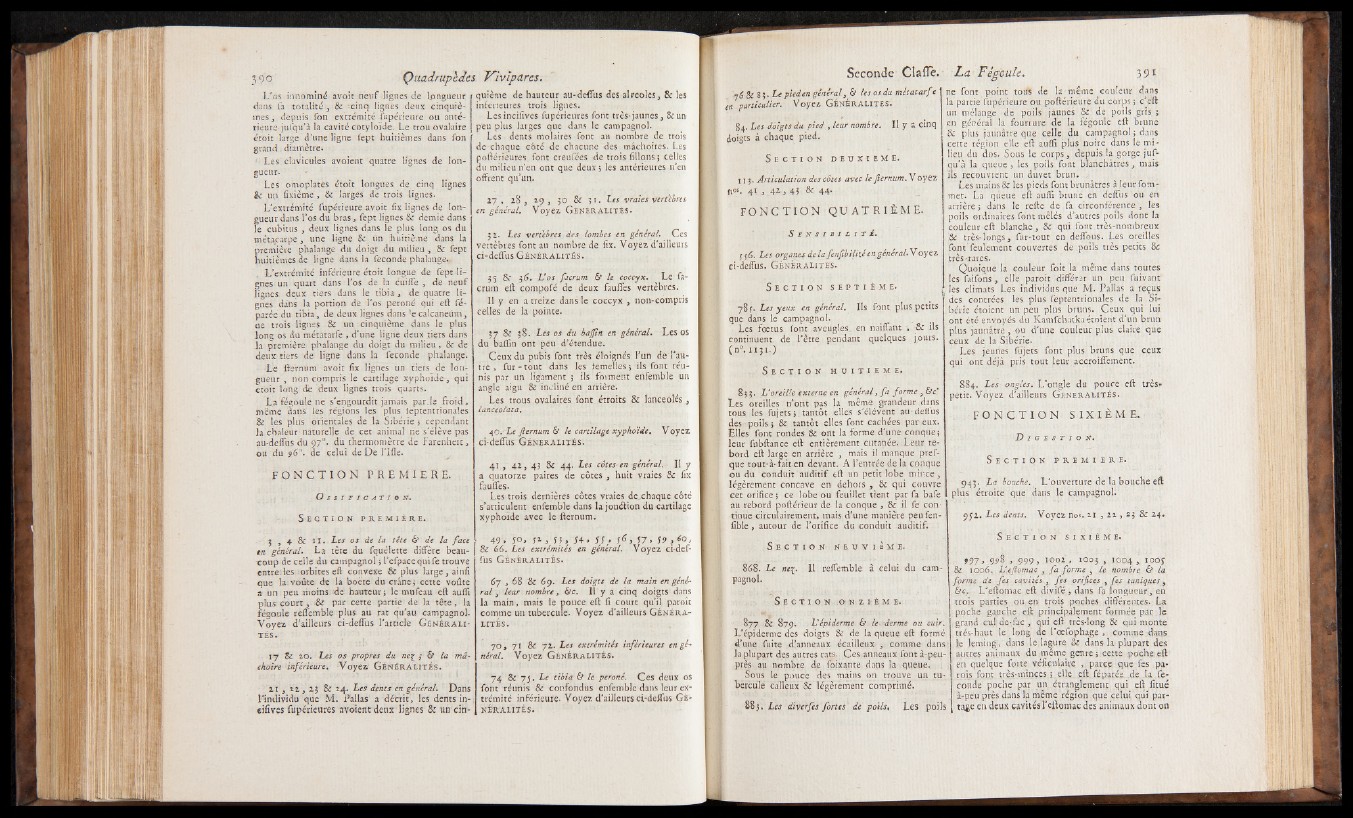 390 Quadrupèdes Vivipares.
L'os innominé avoit neuf lignes de longueur
dans la totalité, & cinq lignes deux cinquiè-
mes, depuis son extrémité supérieure ou anté-
rieure jusqu'à la cavité cotyloïde. Le trou ovalaire
étoit large d'une ligne sept huitièmes dans son
grand diamètre.
Les clavicules avoient quatre lignes de lon-
gueur.
Les omoplates étoit longues de cinq lignes
& un sixième, & larges de trois lignes.
L'extrémité supérieure avoit six lignes de lon-
gueur dans l'os du bras, sept lignes & demie dans
le cubitus, deux lignes dans le plus long os du
métacarpe, une ligne & un huitième dans la
première phalange du doigt du milieu, & sept
huitièmes de ligne dans la seconde phalange.
L'extrémité inférieure étoit longue de sept li-
gnes un quart dans l'os de la cuisse, de neuf
lignes deux tiers dans le tibia, de quatre li-
gnes dans la portion de l'os peroné qui est sé-
parée du tibia, de deux lignes dans le calcaneum,
de trois lignes & un cinquième dans le plus
long os du métatarse, d'une ligne deux tiers dans
la première phalange du doigt du milieu, & de
deux tiers de ligne dans la seconde phalange.
Le sternum avoit six lignes un tiers de lon-
gueur, non compris le cartilage xyphoïde, qui
étoit long de deux lignes trois quarts.
La fégoule ne s'engourdit jamais par le froid,
même dans les régions les plus septentrionales
& les plus orientales de la Sibérie; cependant
la chaleur naturelle de cet animal ne s'élève pas
au-dessus du 97°. du thermomètre de Farenheit,
ou du 96°. de celui de De l'Isle.
FONCTION PREMIERE.
OSSIFICATION.
SECTION PREMIÈRE.
3, 4 & 11. Les os de la tête & de la face
en général. La tête du squélette diffère beau-
coup de celle du campagnol; l'espace qui se trouve
entre les orbites est convexe & plus large, ainsi
que la voûte de la boëte du crâne; cette voûte
a un peu moins de hauteur; le museau est aussi
plus court, & par cette partie de la tête, la
fégoule ressemble plus au rat qu'au campagnol.
Voyez d'ailleurs ci-dessus l'article GÉNÉRALI-
TÉS.
17 & 20. Les os propres du nez; & la mâ-
choire inférieure. Voyez GÉNÉRALITÉS.
21, 22, 23 & 24. Les dents en général. Dans
l'individu que M. Pallas a décrit, les dents in-
cisives supérieures avoient deux lignes & un cin-
quième de hauteur au-dessus des alvéoles, & les
intérieures trois lignes.
Les incisives supérieures sont très-jaunes, & un
peu plus larges que dans le campagnol.
Les dents molaires sont au nombre de trois
de chaque côté de chacune des mâchoires. Les
postérieures sont creusées de trois sillons; celles
du milieu n'en ont que deux; les antérieures n'en
offrent qu'un.
27, 28, 29, 30 & 31. Les vraies vertèbres
en général. Voyez GENERALITÉS.
32. Les vertèbres des lombes en général. Ces
vertèbres sont au nombre de six. Voyez d'ailleurs
ci-dessus GÉNERALITÉS.
35 & 36. L'os sacrum & le coccyx. Le sa-
crum est composé de deux fausses vertèbres.
Il y en a treize dans le coccyx, non-compris
celles de la pointe.
37 & 38. Les os du bassin en général. Les os
du bassin ont peu d'étendue.
Ceux du pubis sont très éloignés l'un de l'au-
tre, sur-tout dans les femelles; ils sont réu-
nis par un ligament; ils forment ensemble un
angle aigu & incliné en arrière.
Les trous ovalaires sont étroits & lanceolés,
lanceolata.
40. Le sternum & le cartilage xyphoïde. Voyez
ci-dessus GÉNÉRALITÉS.
41, 42, 43 & 44. Les côtes en général. Il y
a quatorze paires de côtes, huit vraies & six
fausses.
Les trois dernières côtes vraies de chaque côté
s'articulent ensemble dans la jonction du cartilage
xyphoïde avec le sternum.
49, 50, 52, 53, 54, 55, 56, 57, 59, 60,
& 66. Les extrémités en général. Voyez ci-des-
sus GÉNÉRALITÉS.
67, 68 & 69. Les doigts de la main en géné-
ral, leur nombre, &c. Il y a cinq doigts dans
la main, mais le pouce est si court qu'il paroît
comme un tubercule. Voyez d'ailleurs GÉNÉRA-
LITÉS.
70, 71 & 72. Les extrémités inférieures en gé-
néral. Voyez GÉNÉRALITÉS.
74 & 75. Le tibia & le peroné. Ces deux os
sont réunis & confondus ensemble dans leur ex-
trémité inférieure. Voyez d'ailleurs ci-dessus GÉ-
NÉRALITÉS.
Seconde Classe. La Fégoule. 391
76 & 83. Le pied en général, & les os du métatarse
en particulier. Voyez GÉNÉRALITÉS.
84. Les doigts du pied, leur nombre. Il y a cinq
doigts à chaque pied.
SECTION DEUXIEME.
113. Articulation des côtes avec le sternum. Voyez
nos. 41, 42, 43 & 44.
FONCTION QUATRIÈME.
SENSIBILITÉ.
556. Les organes de la sensibilité en général. Voyez
ci-dessus. GÉNÉRALITÉS.
SECTION SEPTIÈME.
785. Les yeux en général. Ils sont plus petits
que dans le campagnol.
Les fœtus sont aveugles en naissant, & ils
continuent de l'être pendant quelques jours.
(n°. 1131.)
SECTION HUITIEME.
833. L'oreille externe en général, sa forme, &c.
Les oreilles n'ont pas la même grandeur dans
tous les sujets; tantôt elles s'élèvent au-dessus
des poils; & tantôt elles sont cachées par eux.
Elles sont rondes & ont la forme d'une conque;
leur substance est entièrement cutanée. Leur re-
bord est large en arrière, mais il manque pres-
que tout-à-fait en devant. A l'entrée de la conque
ou du conduit auditif est un petit lobe mince,
légèrement concave en dehors, & qui couvre
cet orifice; ce lobe ou feuillet tient par sa base
au rebord postérieur de la conque, & il se con-
tinue circulairement, mais d'une manière peu sen-
sible, autour de l'orifice du conduit auditif.
SECTION NEUVIÈME.
868. Le nez. Il ressemble à celui du cam-
pagnol.
SECTION ONZIÈME.
877 & 879. L'épiderme & le derme ou cuir.
L'épiderme des doigts & de la queue est formé
d'une suite d'anneaux écailleux, comme dans
la plupart des autres rats. Ces anneaux sont à-peu-
près au nombre de soixante dans la queue.
Sous le pouce des mains on trouve un tu-
bercule calleux & légèrement comprimé.
883. Les diverses sortes de poils. Les poils
ne sont point tous de la même couleur dans
la partie supérieure ou postérieure du corps; c'est
un mélange de poils jaunes & de poils gris;
en général la fourrure de la fégoule est brune
& plus jaunâtre que celle du campagnol; dans
cette région elle est aussi plus noire dans le mi-
lieu du dos. Sous le corps, depuis la gorge jus-
qu'à la queue, les poils sont blanchâtres, mais
ils recouvrent un duvet brun.
Les mains & les pieds sont brunâtres à leur som-
met. La queue est aussi brune en dessus ou en
arrière; dans le reste de sa circonférence, les
poils ordinaires sont mêlés d'autres poils dont la
couleur est blanche, & qui sont très-nombreux
& très-longs, sur-tout en dessous. Les oreilles
sont seulement couvertes de poils très petits &
très-rares.
Quoique la couleur soit la même dans toutes
les saisons, elle paroît différer un peu suivant
les climats. Les individus que M. Pallas a reçus
des contrées les plus septentrionales de la Si-
bérie étoient un peu plus bruns. Ceux qui lui
ont été envoyés du Kamschatka étoient d'un brun
plus jaunâtre, ou d'une couleur plus claire que
ceux de la Sibérie.
Les jeunes sujets sont plus bruns que ceux
qui ont déjà pris tout leur accroissement.
884. Les ongles. L'ongle du pouce est très-
petit. Voyez d'ailleurs GÉNÉRALITÉS.
FONCTION SIXIÈME.
DIGESTION.
SECTION PREMIERE.
943. La bouche. L'ouverture de la bouche est
plus étroite que dans le campagnol.
952. Les dents. Voyez nos. 21, 22, 23 & 24.
SECTION SIXIÈME.
997, 998, 999, 1002, 1003, 1004, 1005
& 1006. L'estomac, sa forme, le nombre & la
forme de ses cavités, ses orifices, ses tuniques,
&c. L'estomac est divisé, dans sa longueur, en
trois parties ou en trois poches différentes. La
poche gauche est principalement formée par le
grand cul-de-sac, qui est très-long & qui monte
très-haut le long de l'œsophage, comme dans
le leming, dans le lagure & dans la plupart des
autres animaux du même genre; cette poche est
en quelque sorte vésiculaire, parce que ses pa-
rois sont très-minces; elle est séparée de la se-
conde poche par un étranglement qui est situé
à-peu près dans la même région que celui qui par-
tage en deux cavités l'estomac des animaux dont on